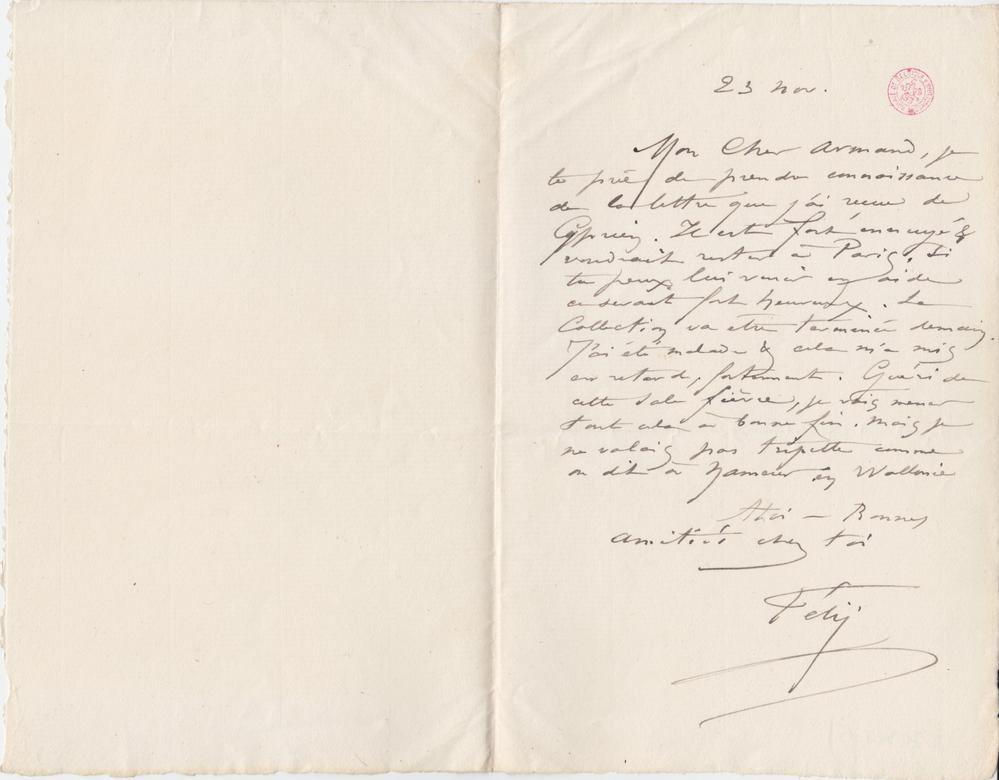 23 nov.
Mon Cher Armand, je
te prie de prendre connaissance
de la lettre que j'ai recue de
Cyprien. Il est fort ennuyé &
voudrait rester à Paris. Si
tu peux lui venir en aide
ce serait fort heureux. La
Collection va etre terminée demain.
J'ai été malade & cela m'a mis
en retard, fortement. Guéri de
cette sale fièvre, je vais mener
tout cela à bonne fin. Mais je
ne valais pas tripette comme
on dit à Namur en Wallonie
A toi — Bonnes
amitiés chez toi
Fély